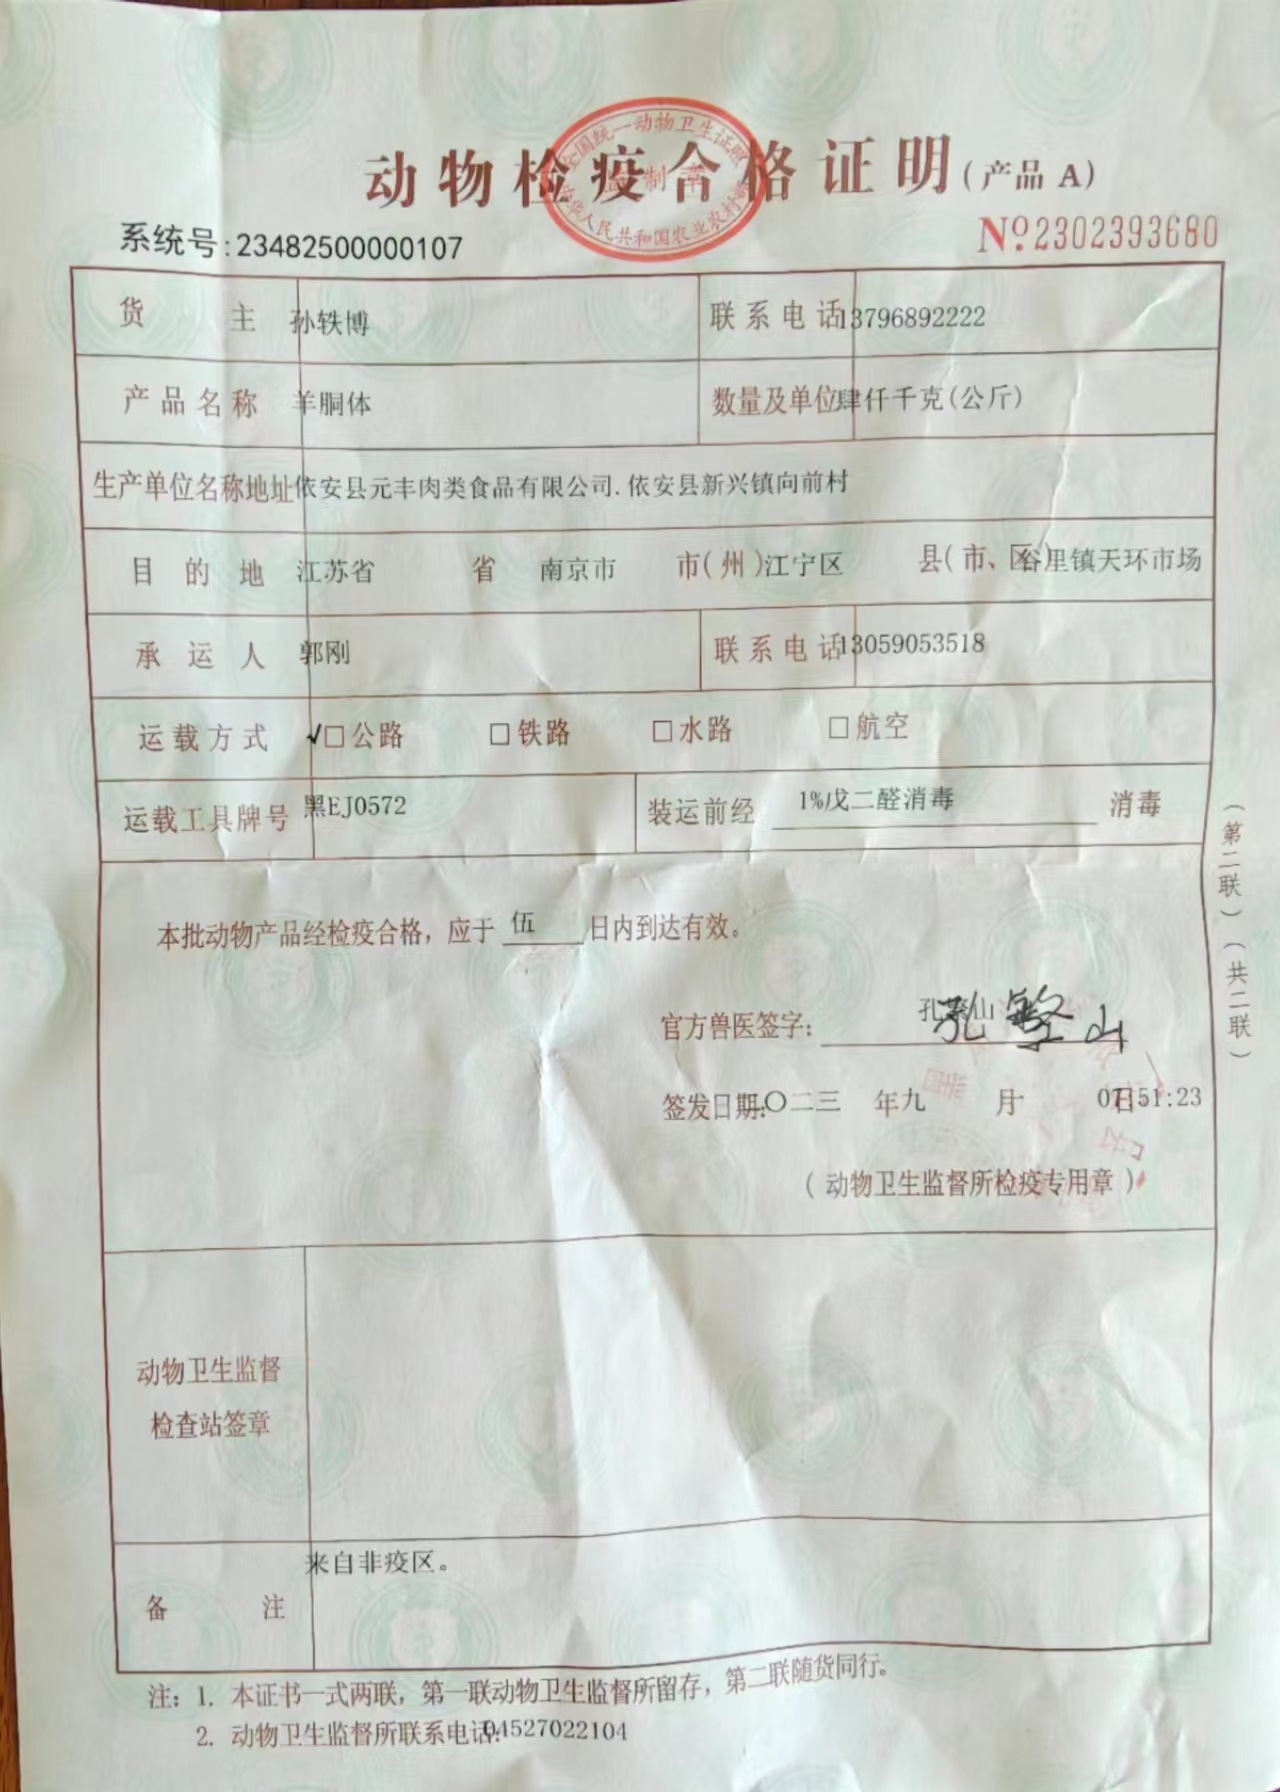 全国统一动物卫生证照
监制章
中华人民共和国农业农村部
动物检疫合格证明(产品 A)
系统号:23482500000107
№2302393680
货 主 孙轶博 联系电话 13796892222
产品名称 羊胴体 数量及单位 肆仟千克(公斤)
生产单位名称地址 依安县元丰肉类食品有限公司.依安县新兴镇向前村
目的地 江苏省 省 南京市 市(州)江宁区 县(市、区)谷里镇天环市场
承运人 郭刚 联系电话 13059053518
运载方式 ✓□公路 □铁路 □水路 □航空
运载工具牌号 黑EJ0572 装运前经 1%戊二醛消毒 消毒
本批动物产品经检疫合格，应于 伍 日内到达有效。
官方兽医签字: 孔繁山 孔繁山
签发日期: 二〇二三 年九 月 日 07:51:23
(动物卫生监督所检疫专用章)
动物卫生监督
检查站签章
备 注 来自非疫区。
注: 1. 本证书一式两联，第一联动物卫生监督所留存，第二联随货同行。
2. 动物卫生监督所联系电话:04527022104
(第二联)(共二联)